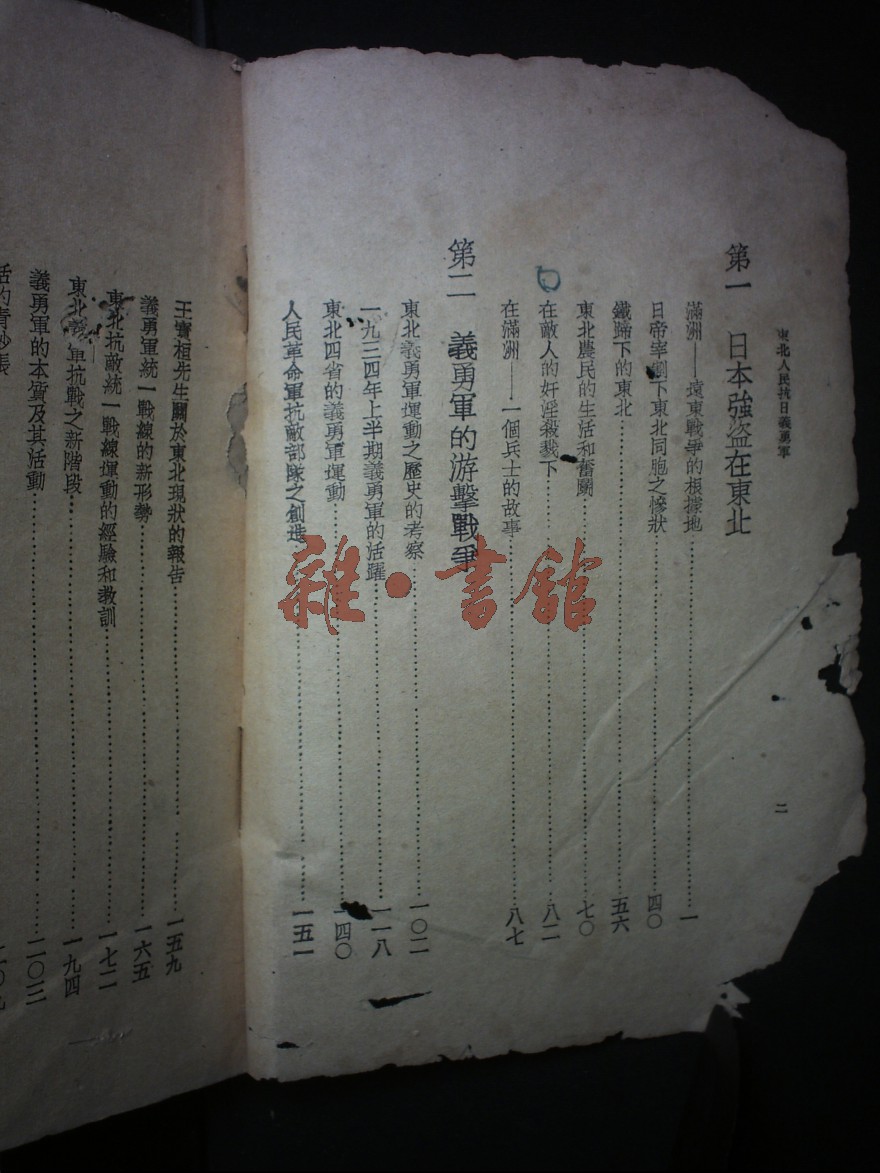 東北人民抗日義勇軍
二
第一 日本強盜在東北
滿洲——遠東戰爭的根據地……一
日帝宰割下東北同胞之慘狀……四〇
鐵蹄下的東北……五六
東北農民的生活和奮鬭……七〇
在敵人的奸淫殺戮下……八二
在滿洲——一個兵士的故事……八七
第二 義勇軍的游擊戰爭
東北義勇軍運動之歷史的考察……一〇二
一九三四年上半期義勇軍的活躍……一一八
東北四省的義勇軍運動……一四〇
人民革命軍抗敵部隊之創造……一五一
雜·書館
王寶桓先生關於東北現狀的報告……一五九
義勇軍統一戰線的新形勢……一六五
東北抗敵統一戰線運動的經驗和教訓……一七二
東北義 軍抗戰之新階段……一九四
義勇軍的本質及其活動……二〇三
活的青紗帳……二〇九